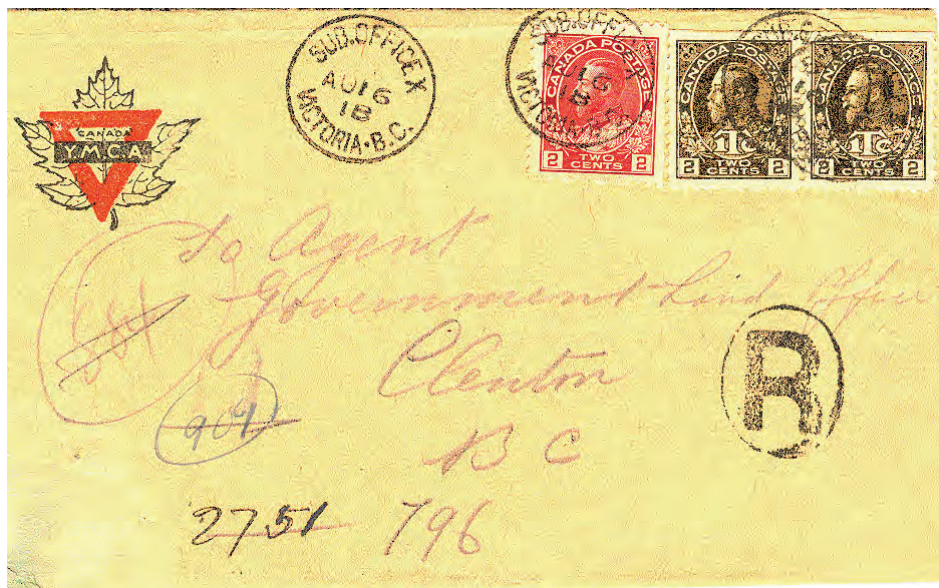 SUB.OFFICE.X
AU 16
18
VICTORIA-B.C.
CANADA POSTAGE
2 TWO CENTS 2
CANADA POSTAGE
1Tc
2 TWO CENTS 2
CANADA POSTAGE
1Tc
2 TWO CENTS 2
CANADA
Y.M.C.A.
To Agent
Government Land Office
Clenton
B C
R
909
2751 796